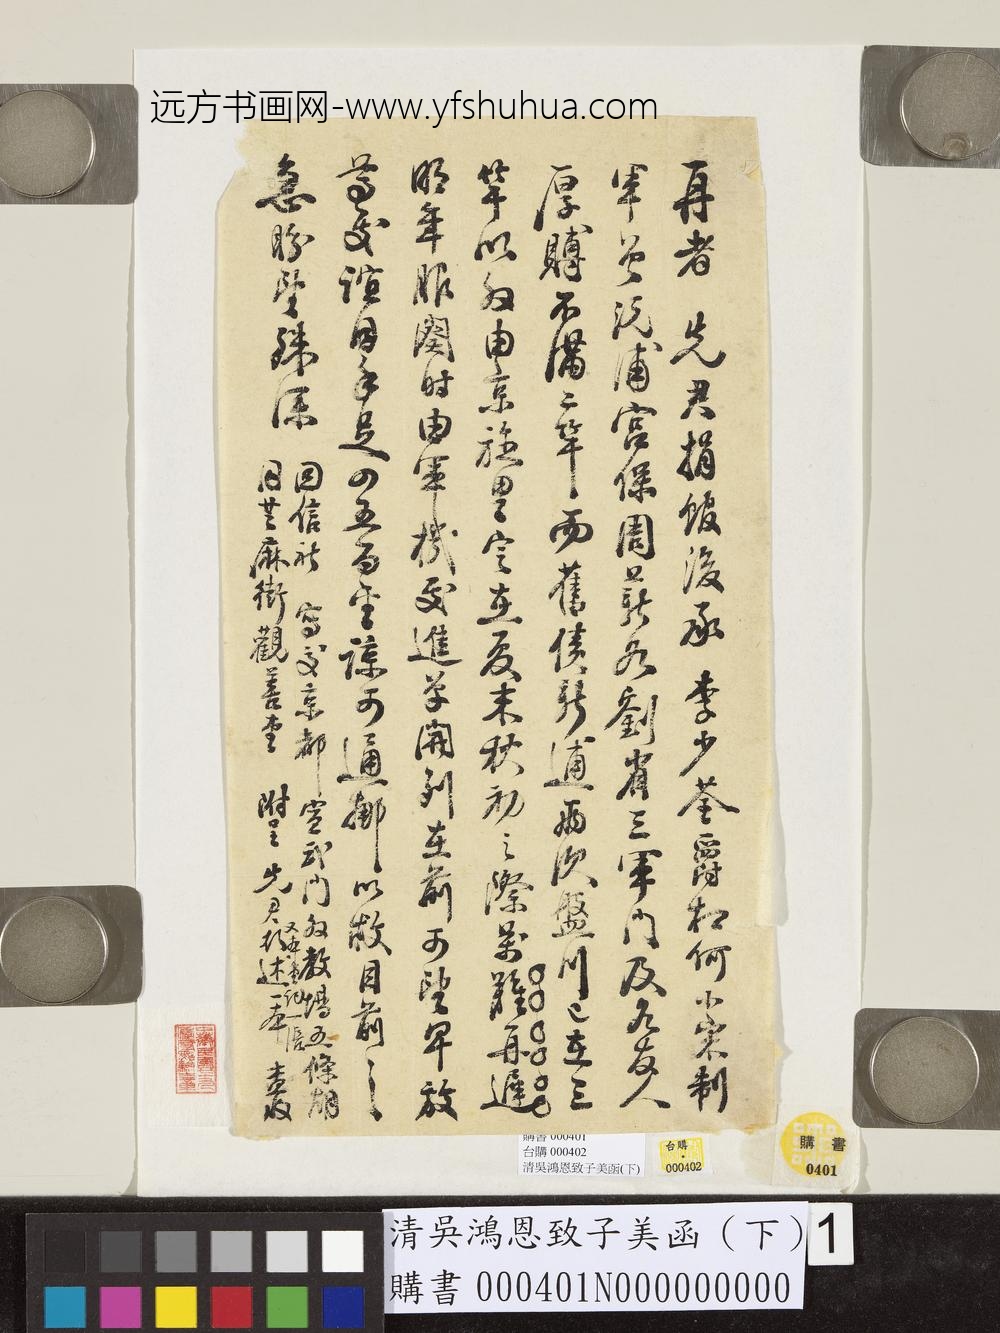 远方书画网-www.yfshuhua.com
再者 先君捐館後承 李少荃爵相何小宋制
軍曾沅浦宮保周薪如劉省三軍門及各友人
厚賻不滿二竿而舊債新逋兩次盤川已在三
竿以外由京旋里定在夏末秋初之際萬難再遲
明年服闋時由軍機處進單開列在前可望早放
等交誼同手足四五百金諒可通挪以救目前之
急盼望殊深
回信祈 寄交京都宣武門外教場五條胡
同芝麻街觀善堂 附呈 先君行述一本 查收
購書 000401
台購 000402
清吳鴻恩致子美函(下)
台購
000402
購書
0401
清吳鴻恩致子美函（下）
購書 000401N000000000
1